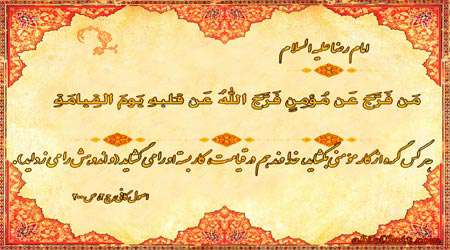 امام رضا علیه السلام
مَن فَرَّجَ عَن مُؤمِنٍ فَرَّجَ اللهُ عَن قَلبِهِ یَومَ القِیامَةِ
هر کس گره از کار مؤمنی بگشاید، خداوند هم در قیامت، کار بسته او را می گشاید (و اندوهش را می زداید).
اصول کافی ج ۲ ص ۲۰۰